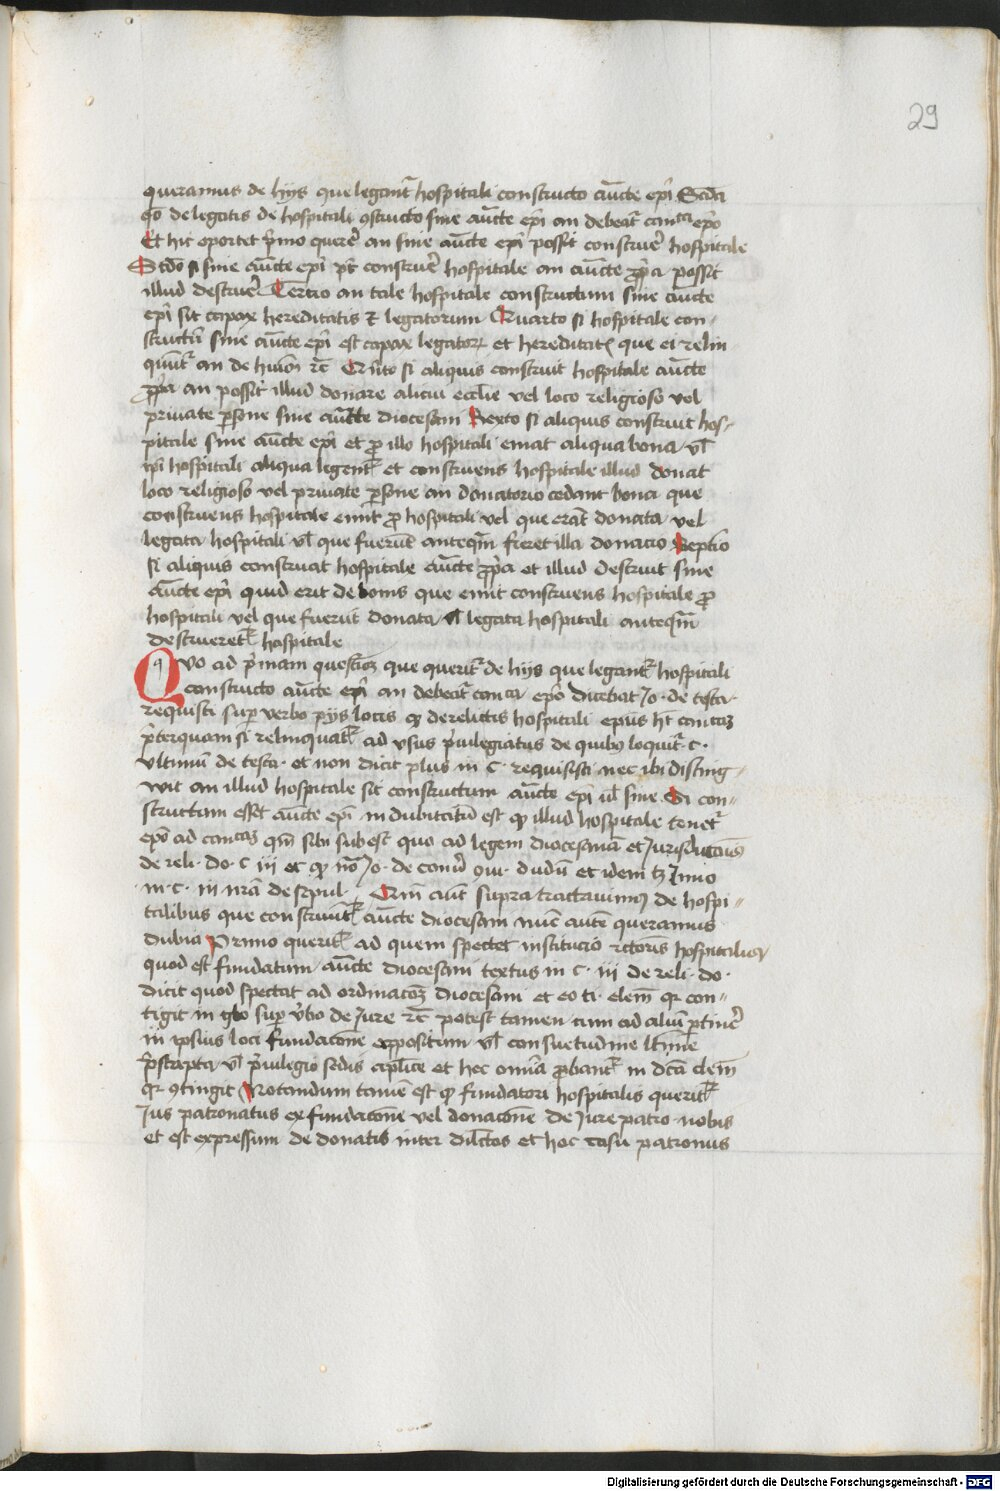 29
queramus de hijs que legant᷑ hospitali constructo auc̄te ep̄i Scd̄a
qō de legatis de hospitali ꝯstructo sine auc̄te ep̄i an debeat᷑ canᵗᵃ ep̄o
Et hic oportet p̄mo quere᷑ an sine auc̄te ep̄i possit construe᷑ hospitale
Scd̄o si sine auc̄te ep̄i pt̄ construe᷑ hospitale an auc̄te ꝓp̄a possit
illud destrue᷑ Tercio an tale hospitale constructum sine auc̄te
ep̄i sit capax hereditatis et legatorum Quarto si hospitale con-
structū sine auc̄te ep̄i est capax legatoꝝ et hereditatꝭ que ei relin
quūt᷑ an de huiōi rc̄ Qⁱnto si aliquis construit hospitale auc̄te
ꝓp̄a an possit illud donare alicui ecclīe vel loco religioso vel
priuate ꝑsone sine auc̄te diocesani Sexto si aliquis construit hos-
pitale sine auc̄te ep̄i et ꝓ illo hospitali emat aliqua bona vl̄
ip̄i hospitali aliqua legent᷑ et construens hospitale illud donat
loco religioso vel priuate ꝑsone an donatorio cedant bona que
construens hospitale emit ꝓ hospitali vel que erāt donata vel
legata hospitali vl̄ que fuerūt anteqm̄ fieret illa donacio Septīo
si aliquis construat hospitale auc̄te ꝓp̄a et illud destruit sine
auc̄te ep̄i quid erit de bonis que emit construens hospitale ꝓ
hospitali vel que fuerūt donata vl̄ legata hospitali anteqm̄
destrueret᷑ hospitale
Quo ad p̄mam questioꝫ que querit᷑ de hijs que legant᷑ hospitali
constructo auc̄te ep̄i an debeat᷑ canᵗᵃ ep̄o dicebat Jo· de testa·
requisti suꝑ verbo pijs locis ꝙ derelictis hospitali epūs ht̄ canᵗᵃꝫ
p̄terquam si relinquat᷑ ad vsus p̄uilegiatus de quibꝫ loquit᷑ c·
vltimū de testa· et non dicit plus in c· requisisti nec ibi disting-
wit an illud hospitale sit constructum auc̄te ep̄i vl̄ sine Si con-
structum esset auc̄te ep̄i indubitatū est ꝙ illud hospitale tenet᷑
ep̄o ad canᵗᵃꝫ qm̄ sibi subest quo ad legem diocesanā et Jurisduccōis
de reli· do· c iij et ꝙ no᷑ Jo· de conse᷑ dudū et idem tꝫ Inno
in c· in nr̄a de sepul· Qm̄ aūt supra tractauimꝰ de hospi-
talibus que construūt᷑ auc̄te diocesani nūc autē queramus
dubia Primo querit᷑ ad quem spectet institucio rectoris hospitaliū
quod est fundatum auc̄te diocesani textus in c· iij de reli· do·
dicit quod spectat ad ordinacōꝫ diocesani et eo ti· elem̄ qr con-
tigit in glo suꝑ v̄bo de Jure rc̄ potest tamen cum ad aliū ꝑtine᷑
in ipsius loci fundacōne appositum vl̄ consuetudine lt̄ime
p̄scripta vl̄ p̄uilegio sedis aplīce et hec om̄ia ꝓbant᷑ in dc̄a clem̄
qr ꝯtingit Notandum tamē est ꝙ fundatori hospitalis querit᷑
Jus patronatus ex fundacōne vel donacōne de Jure patro nobis
et est expressum de donatis inter dilc̄tos et hoc casu patronus
Digitalisierung gefördert durch die Deutsche Forschungsgemeinschaft - DFG